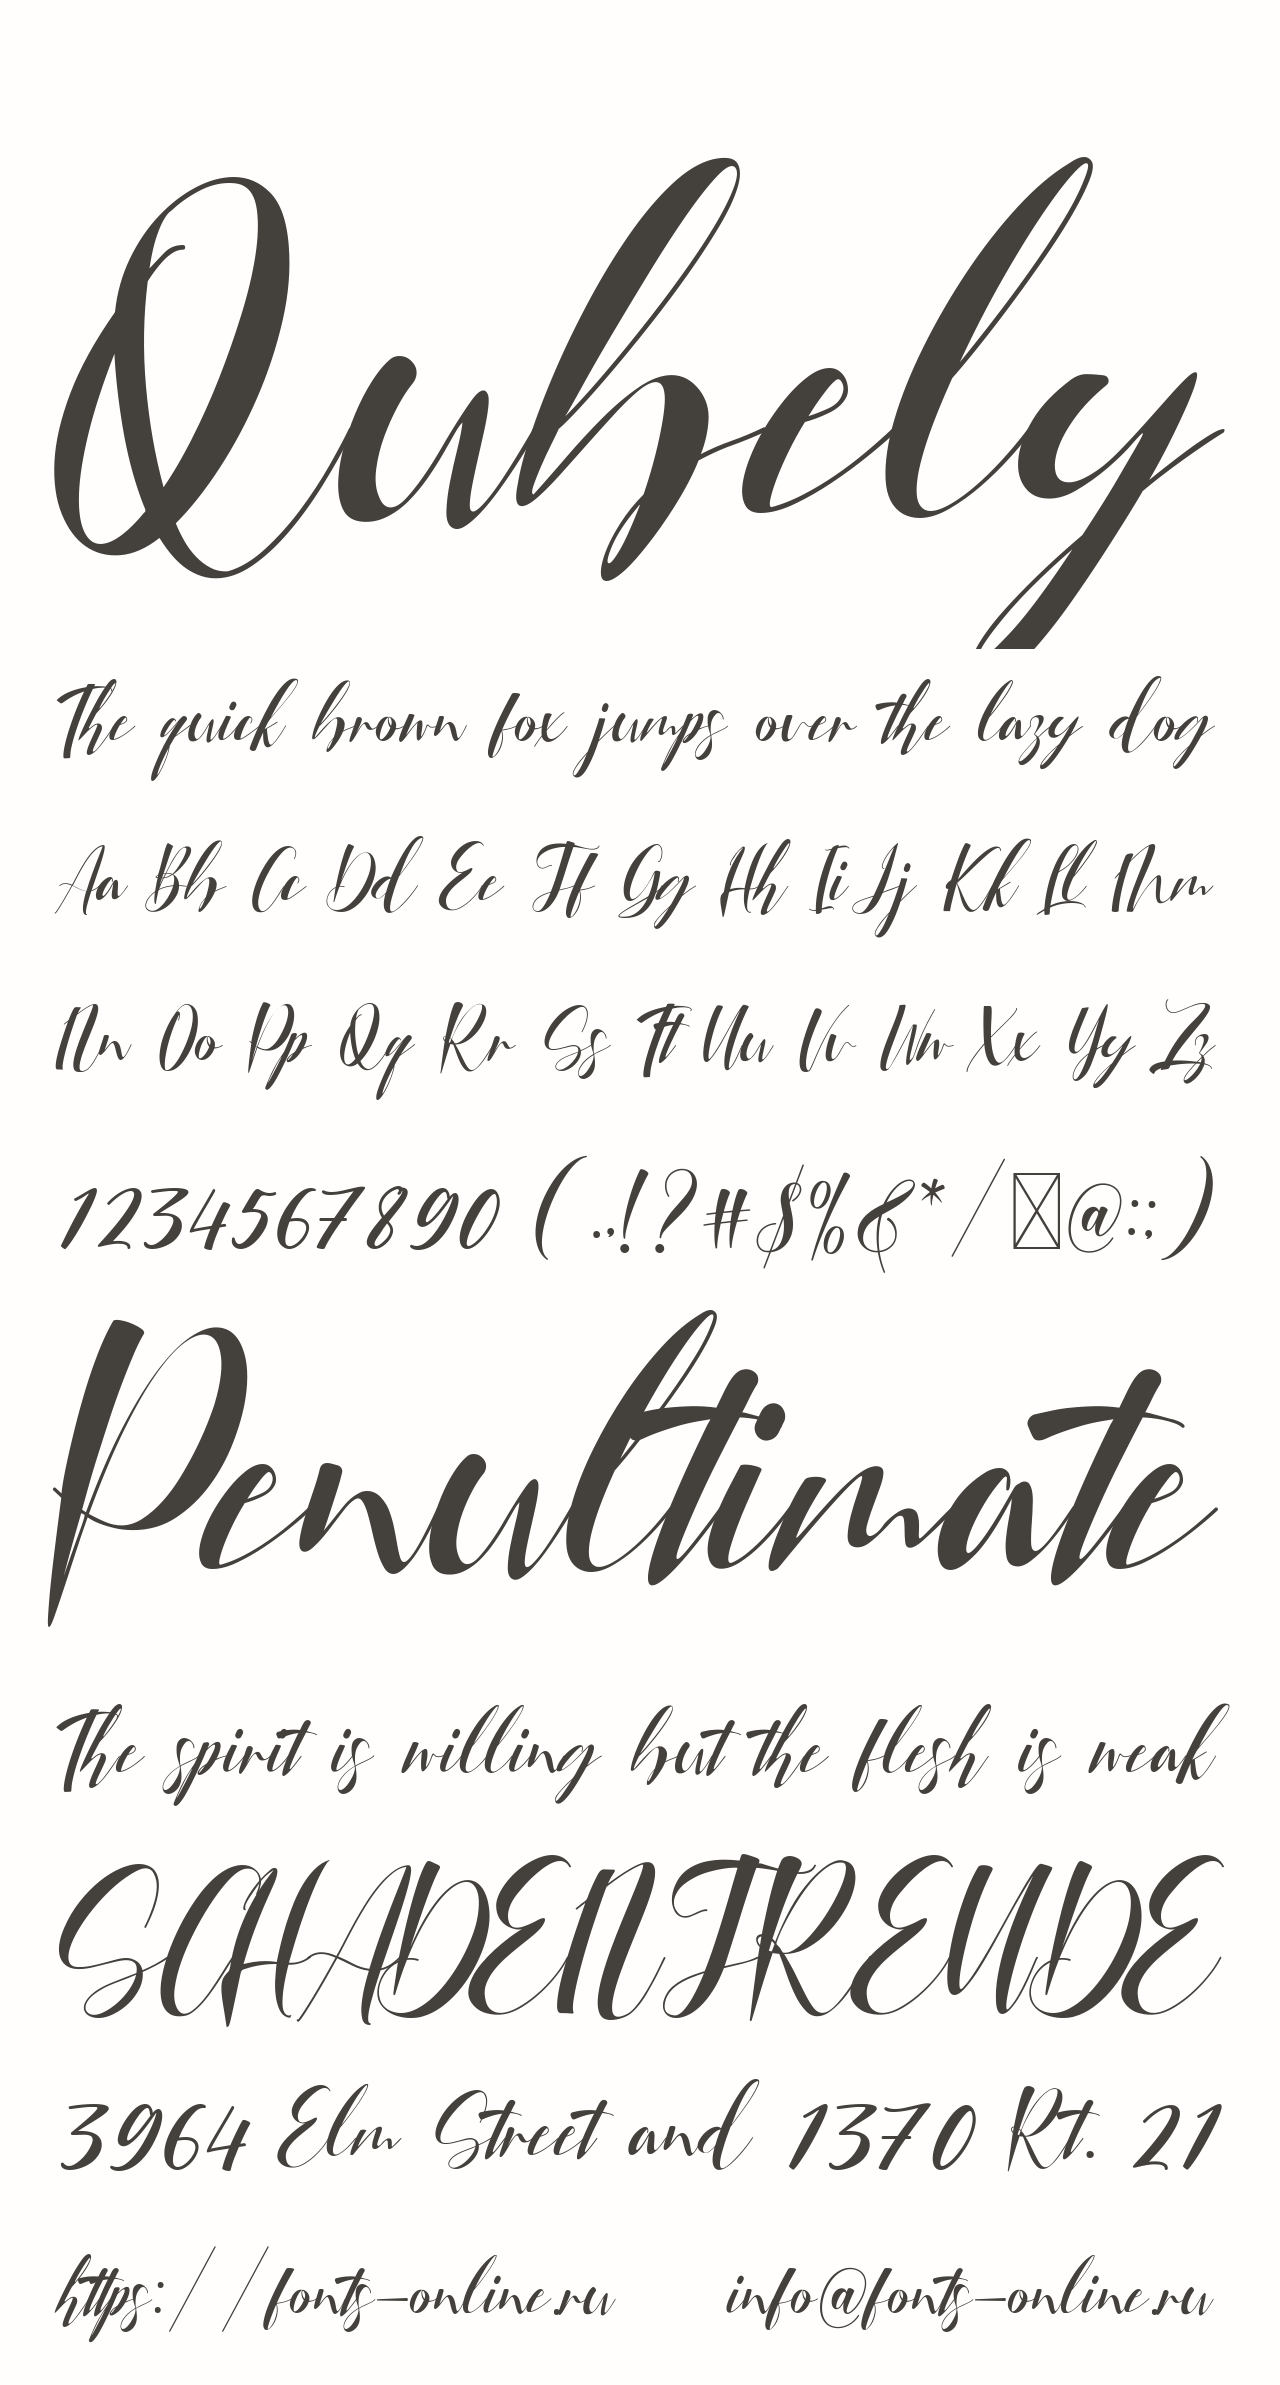 Qubely
The quick brown fox jumps over the lazy dog
Aa Bb Cc Dd Ee Ff Gg Hh Ii Jj Kk Ll Mm
Nn Oo Pp Qq Rr Ss Tt Uu Vv Ww Xx Yy Zz
1234567890 (.,!?#$%&*/@:;)
Penultimate
The spirit is willing but the flesh is weak
SCHADENFREUDE
3964 Elm Street and 1370 Rt. 21
https://fonts-online.ru info@fonts-online.ru